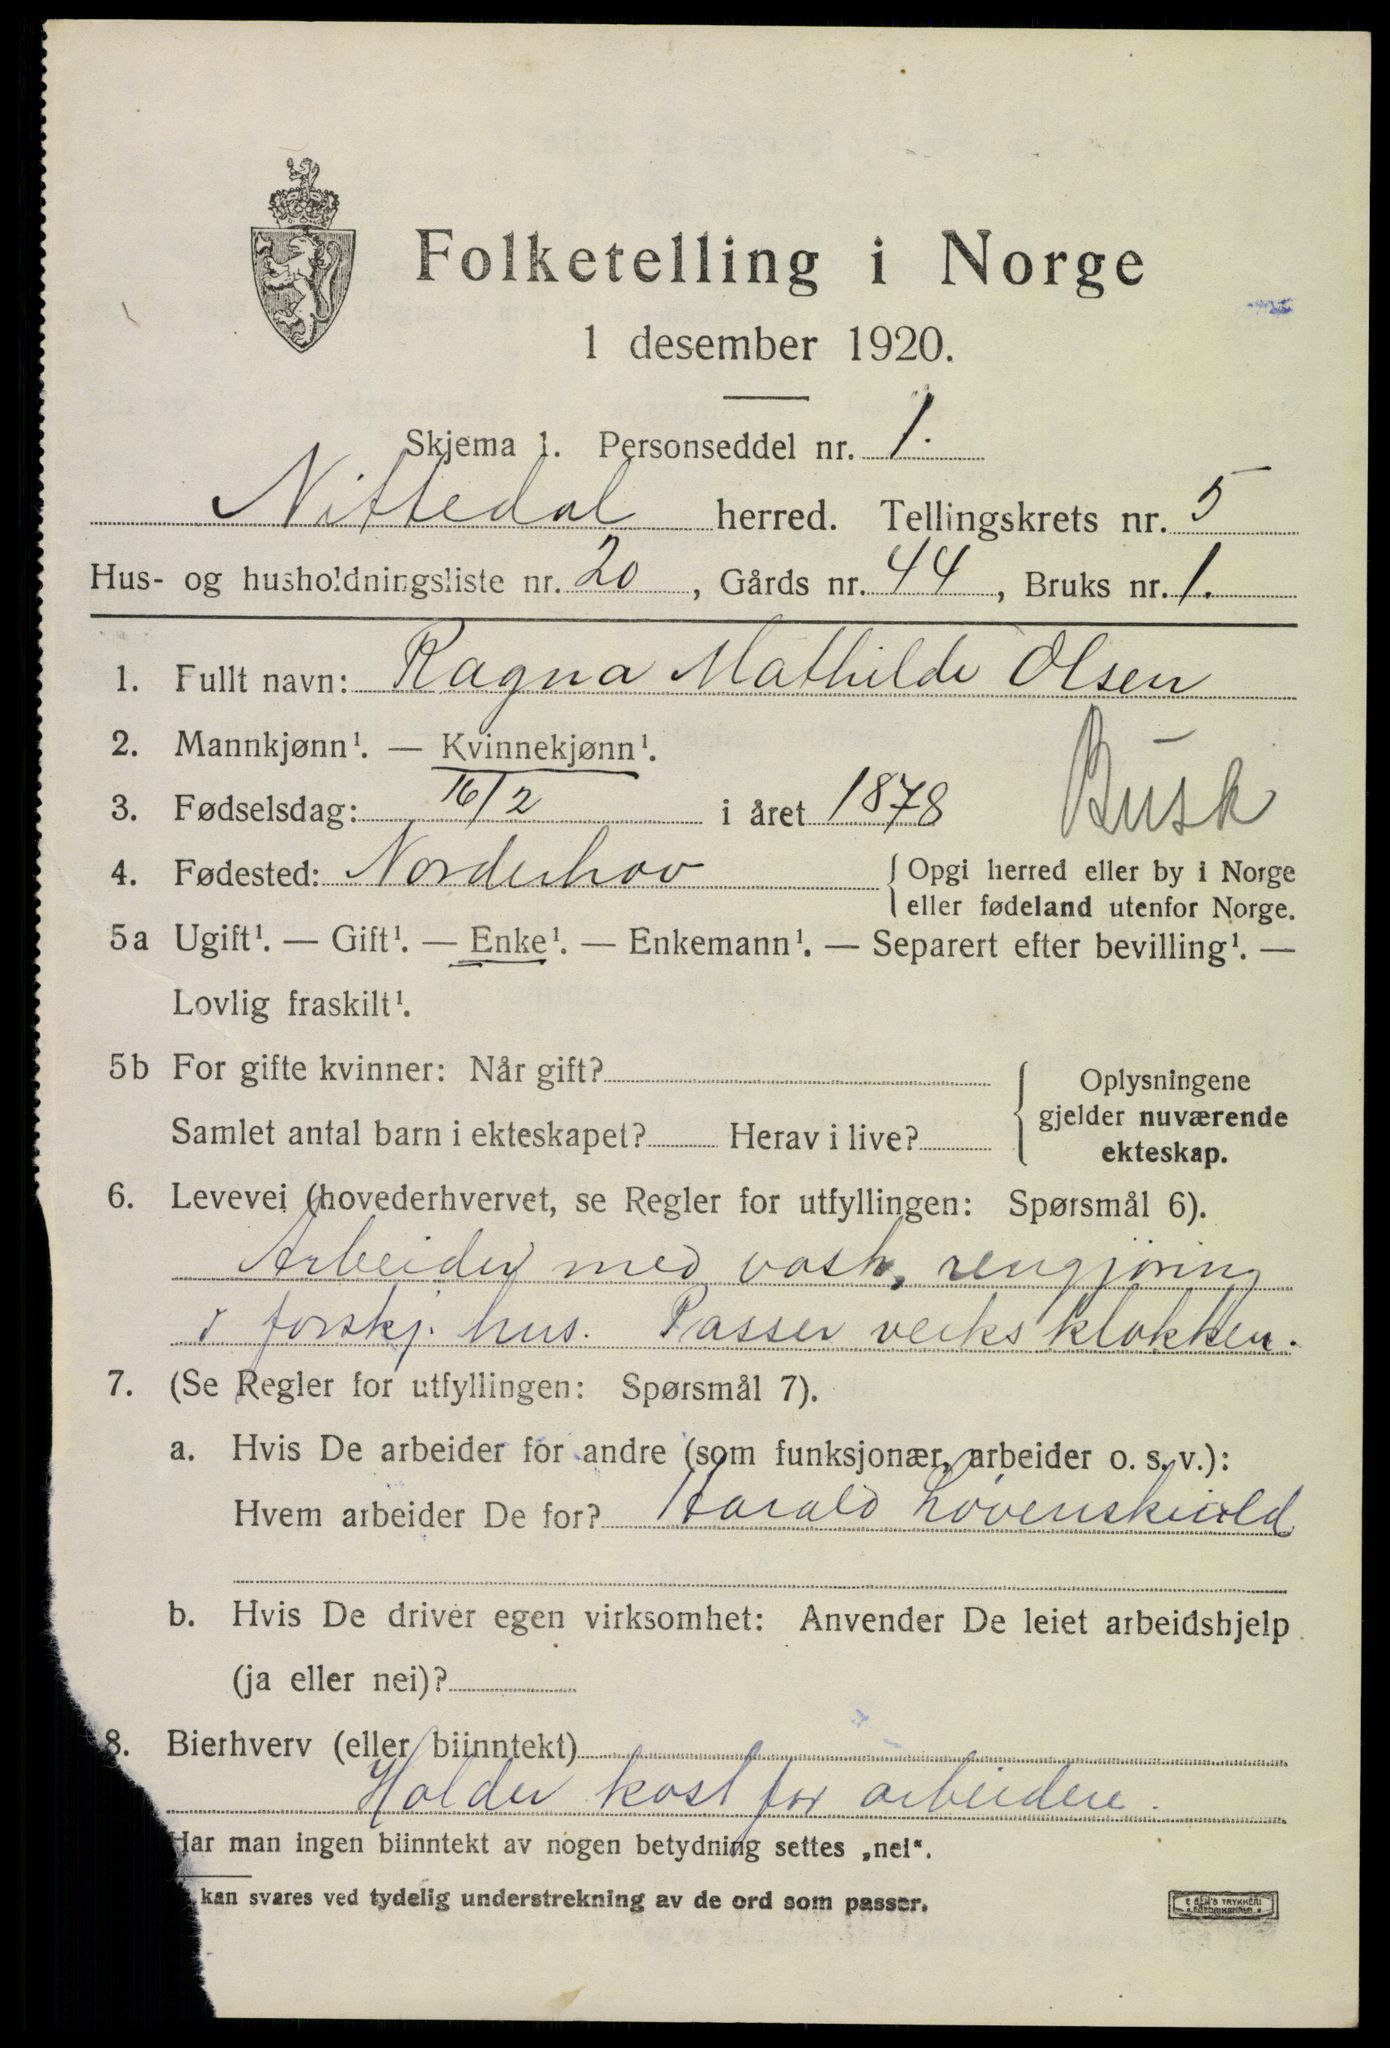 Folketelling i Norge
1 desember 1920.
Skjema 1. Personseddel nr. 1.
Nittedal herred. Tellingskrets nr. 5
Hus- og husholdningsliste nr. 20, Gårds nr. 44, Bruks nr. 1.
1. Fullt navn: Ragna Mathilde Olsen
2. Mannkjønn¹. — Kvinnekjønn¹.
3. Fødselsdag: 16/2 i året 1878 Busk
4. Fødested: Norderhov { Opgi herred eller by i Norge
eller fødeland utenfor Norge.
5a Ugift¹. — Gift¹. — Enke¹. — Enkemann¹. — Separert efter bevilling¹. —
Lovlig fraskilt¹.
5b For gifte kvinner: Når gift?
Samlet antal barn i ekteskapet? Herav i live?
{ Oplysningene
gjelder nuværende
ekteskap.
6. Levevei (hovederhvervet, se Regler for utfyllingen: Spørsmål 6).
Arbeider med vask, rengjøring
i forskj. hus. Passer verksklokken.
7. (Se Regler for utfyllingen: Spørsmål 7).
a. Hvis De arbeider for andre (som funksjonær, arbeider o. s. v.):
Hvem arbeider De for? Harald Løvenskiold
b. Hvis De driver egen virksomhet: Anvender De leiet arbeidshjelp
(ja eller nei)?
8. Bierhverv (eller biinntekt)
Holder kost for arbeidere.
Har man ingen biinntekt av nogen betydning settes „nei“.
kan svares ved tydelig understrekning av de ord som passer.